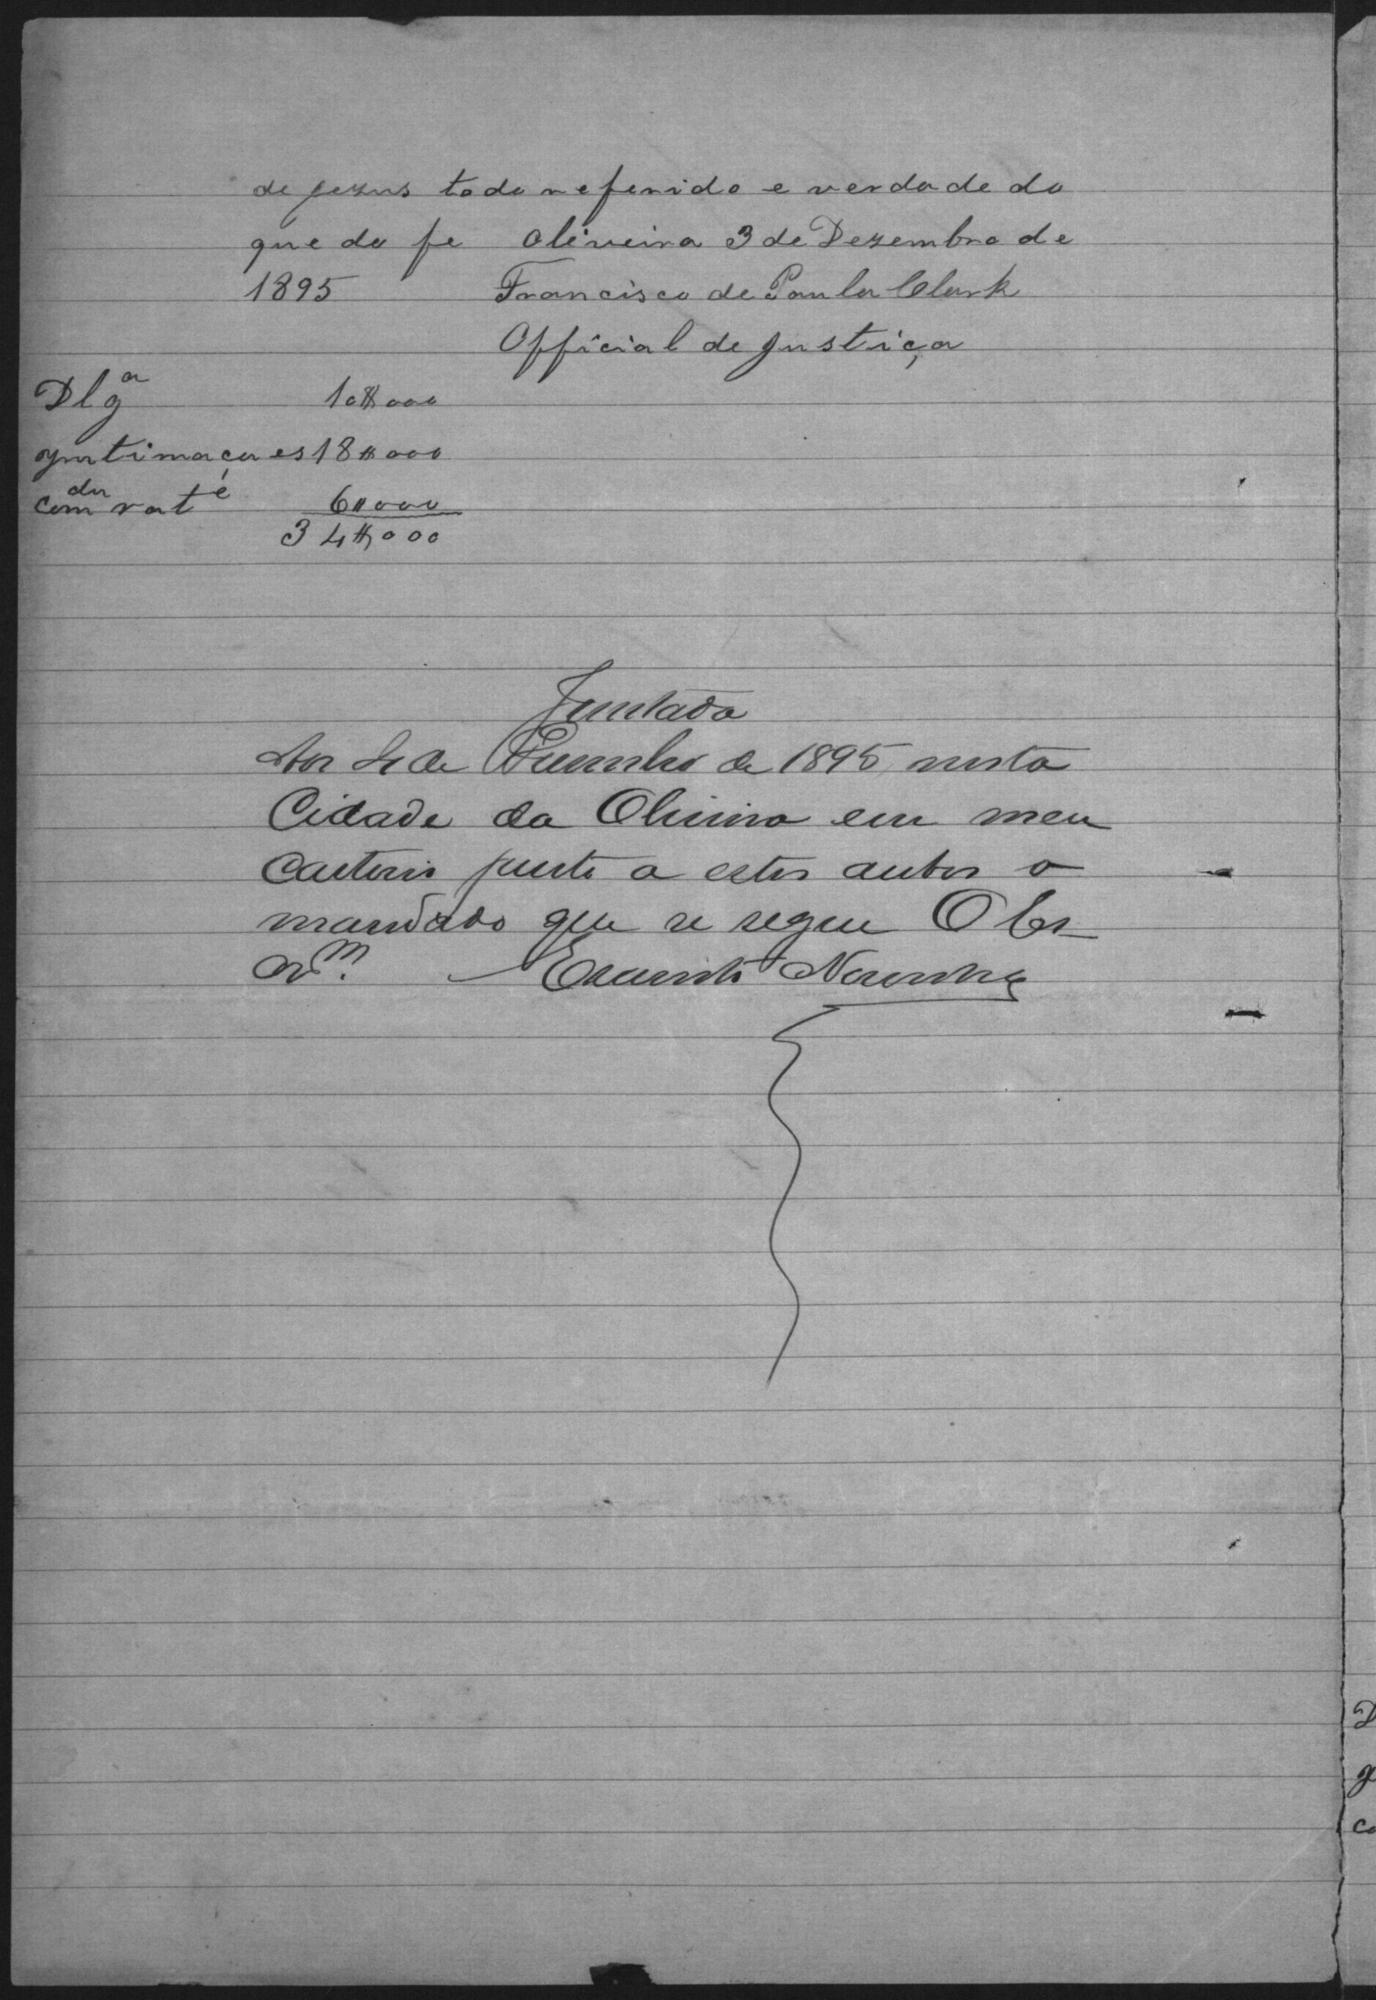 de jezus todo referido e verdade do
que do fe Oliveira 3 de Dezembro de
1895 Francisco de Paula Clark
Official de justiça
Dlgª 10$000
yntimaçoes 18$000
6$000
34$000
Juntada
Aos 4 de Dezembro de 1895 nesta
Cidade da Oliveira em meu
Cartorio junto a estes autos o
mandado que se segue O Es-
am.
D
g
co